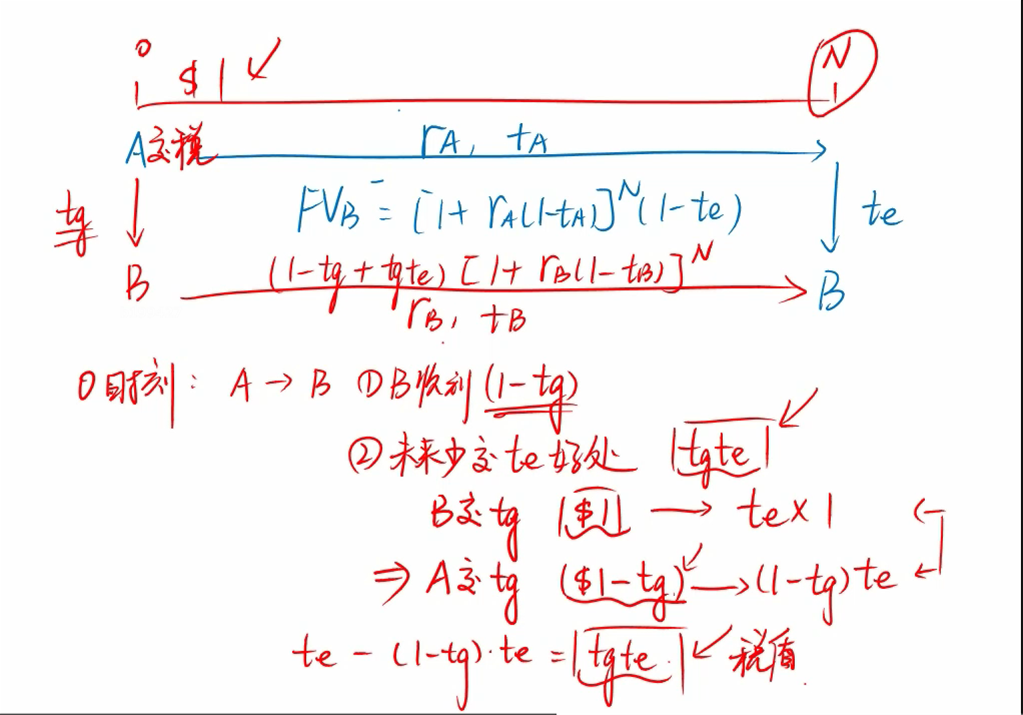 0 $1 ✓ N
A交税 rA, tA
tg FVB = [1 + rA(1-tA)]^N (1-te) te
B (1-tg+tgte) [1 + rB(1-tB)]^N B
rB, tB
0时刻: A → B ① B收到 (1-tg)
② 未来少交te好处 tgte
B交tg $1 → te×1
⇒ A交tg ($1-tg) → (1-tg)te
te - (1-tg)·te = tgte 税盾